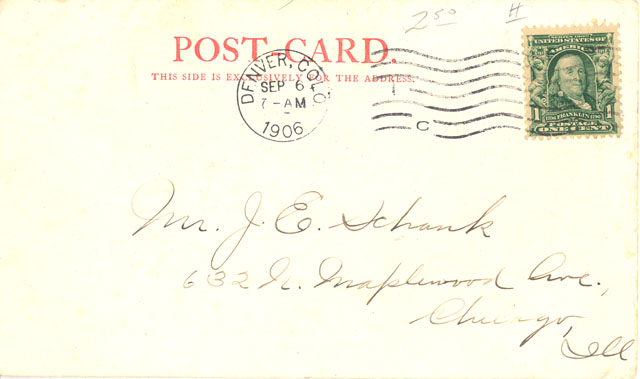 2 50 H
POST-CARD.
THIS SIDE IS EXCLUSIVELY FOR THE ADDRESS.
DENVER, COLO
SEP 6
7-AM
1906
C
SERIES 1902
UNITED STATES OF
AMERICA
1 FRANKLIN 1
POSTAGE
ONE CENT
Mr. J. E. Schank
632 N. Maplewood Ave.,
Chicago,
Ill